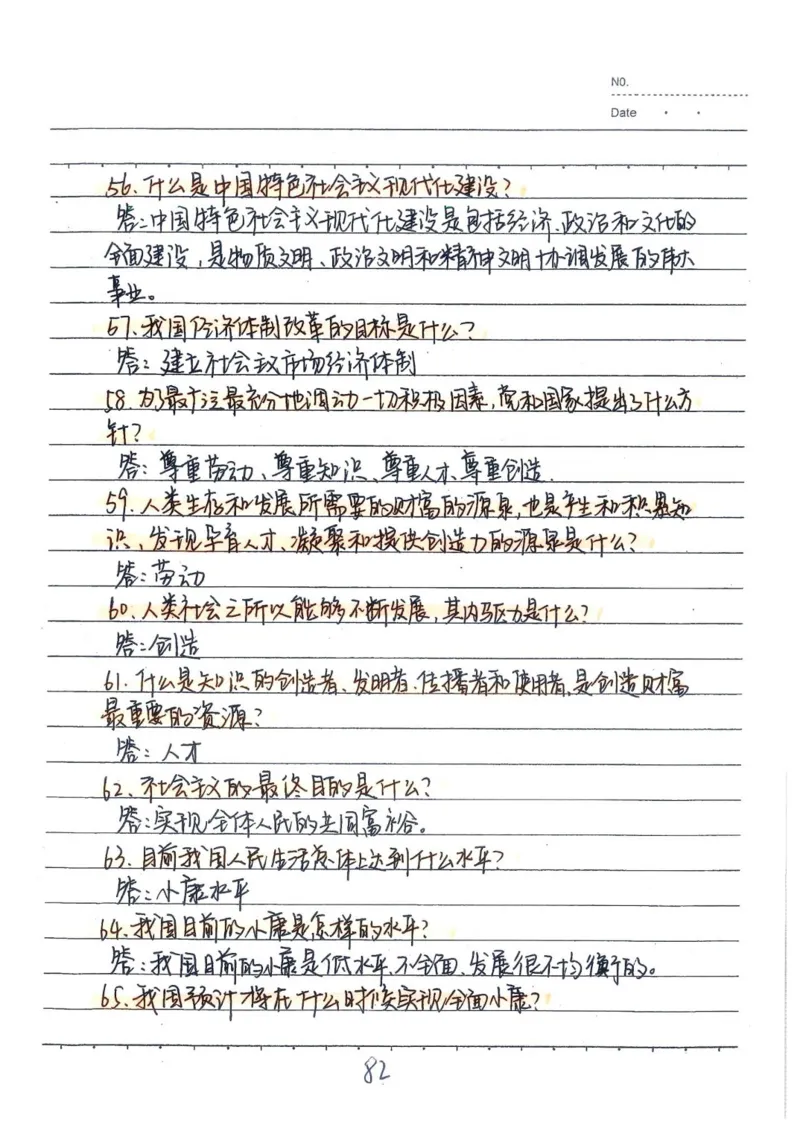 NO.
Date
56、什么是中国特色社会主义现代化建设?
答:中国特色社会主义现代化建设是包括经济、政治和文化的
全面建设,是物质文明、政治文明和精神文明协调发展的伟大
事业。
57、我国经济体制改革的目标是什么?
答:建立社会主义市场经济体制
58、为了最广泛最充分地调动一切积极因素,党和国家提出了什么方
针?
答:尊重劳动、尊重知识、尊重人才、尊重创造.
59、人类生存和发展所需要的财富的源泉,也是产生和积累知
识、发现孕育人才、凝聚和提供创造力的源泉是什么?
答:劳动
60、人类社会之所以能够不断发展,其内驱力是什么?
答:创造
61、什么是知识的创造者、发明者、传播者和使用者,是创造财富
最重要的资源?
答:人才
62、社会主义的最终目的是什么?
答:实现全体人民的共同富裕。
63、目前我国人民生活总体上达到什么水平?
答:小康水平
64、我国目前的小康是怎样的水平?
答:我国目前的小康是低水平、不全面、发展很不均衡的。
65、我国预计将在什么时候实现全面小康?
82